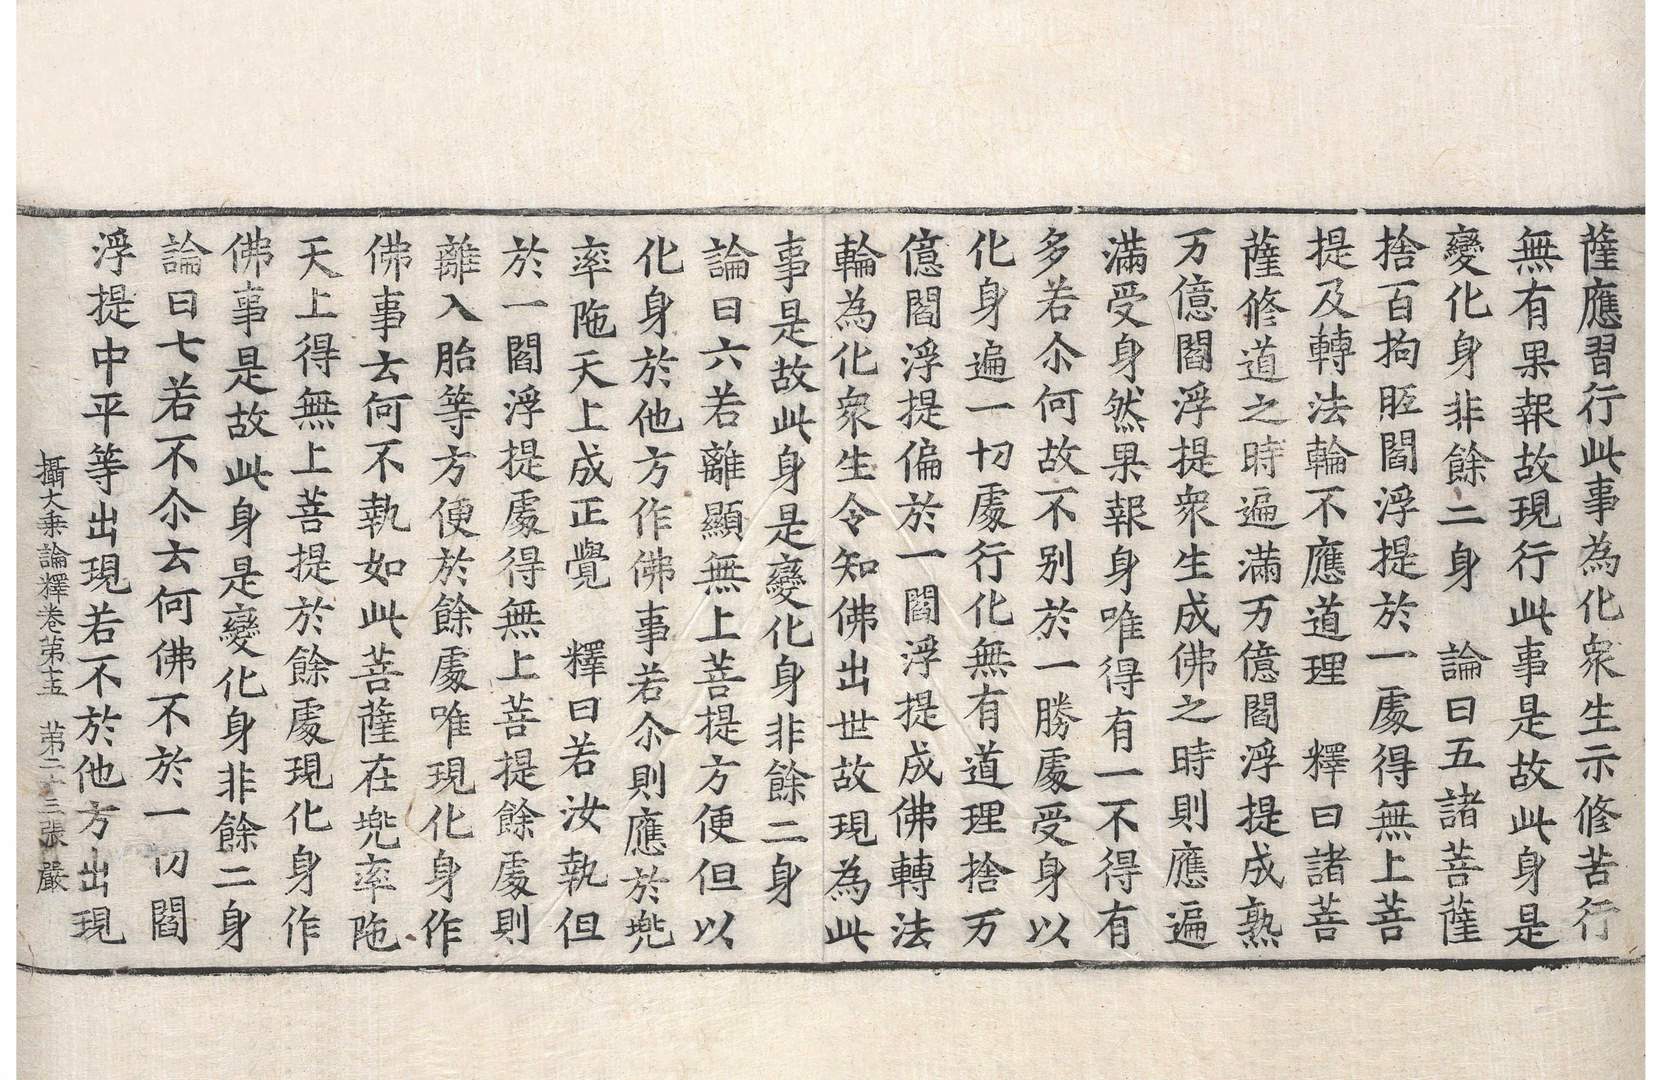 薩應習行此事為化衆生示修苦行
無有果報故現行此事是故此身是
變化身非餘二身　論曰五諸菩薩
捨百拘胝閻浮提於一處得無上菩
提及轉法輪不應道理　釋曰諸菩
薩修道之時遍滿万億閻浮提成熟
万億閻浮提衆生成佛之時則應遍
滿受身然果報身唯得有一不得有
多若尒何故不别於一勝處受身以
化身遍一切處行化無有道理捨万
億閻浮提偏於一閻浮提成佛轉法
輪為化衆生令知佛出世故現為此
事是故此身是變化身非餘二身
論曰六若離顯無上菩提方便但以
化身於他方作佛事若尒則應於兠
率陁天上成正覺　釋曰若汝執但
於一閻浮提處得無上菩提餘處則
離入胎等方便於餘處唯現化身作
佛事云何不執如此菩薩在兠率陁
天上得無上菩提於餘處現化身作
佛事是故此身是變化身非餘二身
論曰七若不尒云何佛不於一切閻
浮提中平等出現若不於他方出現
攝大乗論釋卷第十五　第二十三張　嚴